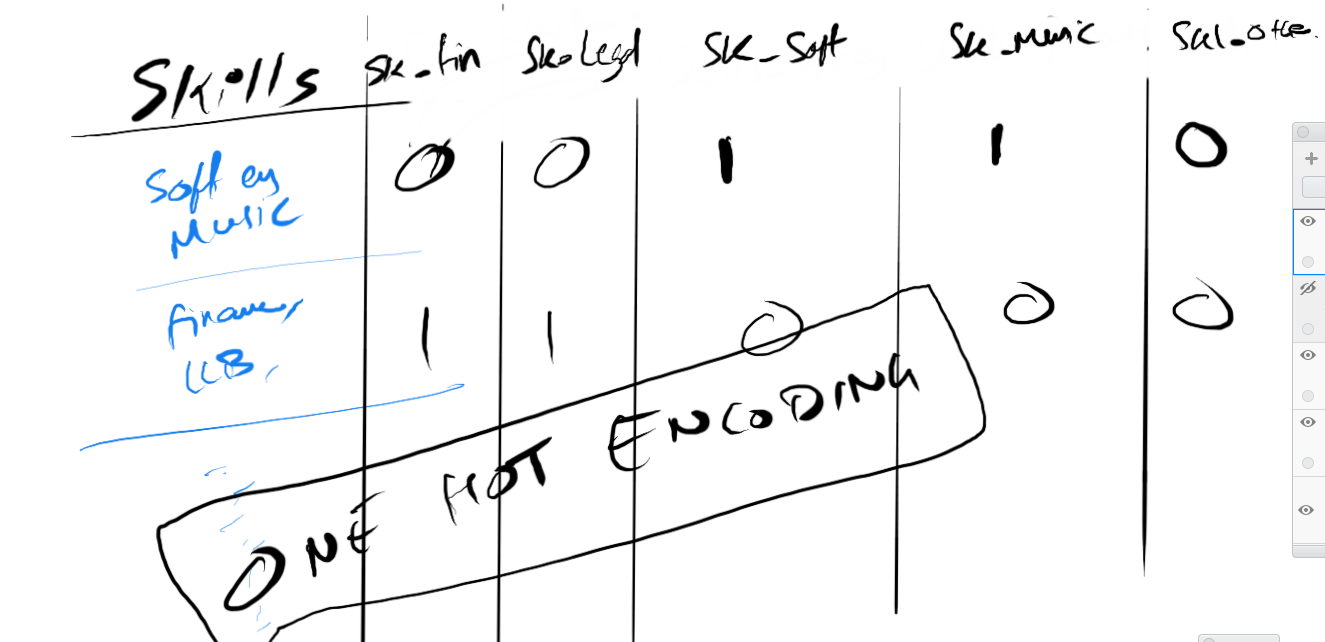 Skills sk_fin sk_legal SK_Soft Sk_Music Skl_othe.
Soft eng
Music
0 0 1 1 0
Finance,
LLB,
1 1 0 0 0
ONE HOT ENCODING